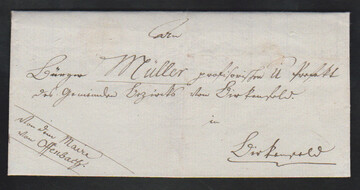 Bürger Müller
des Gemeinden Bezirks von Birkenfeld
in
Birkenfeld
Von dem Maire
von Offenbach